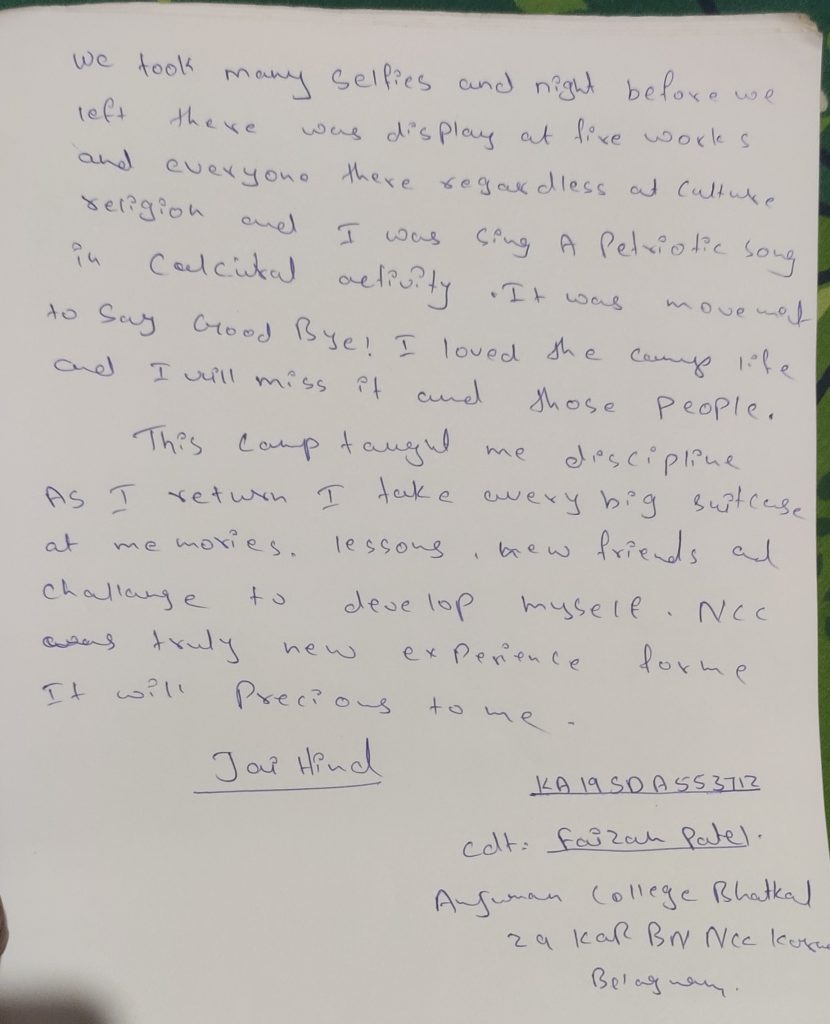 We took many selfies and night before we
left there was display at fire works
and everyone there regardless at culture
religion and I was sing A Petriotic song
in activity. It was
to Say Good Bye! I loved the camp life
and I will miss it and those People.
This camp taught me discipline
As I return I take avery big suitcase
at memories. lessons, new friends ad
challange to develop myself. NCC
was truly new experience for me
It will Precious to me.
Jai Hind
KA19SDA553712
cdt: Faizan Patel.
Anjuman College Bhatkal
29 KAR BN NCC